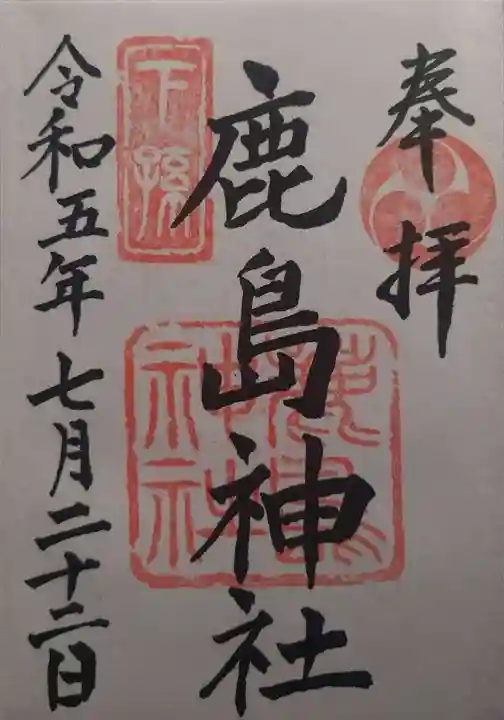 奉拝
鹿島神社
下孫
鹿島神社
令和五年七月二十二日